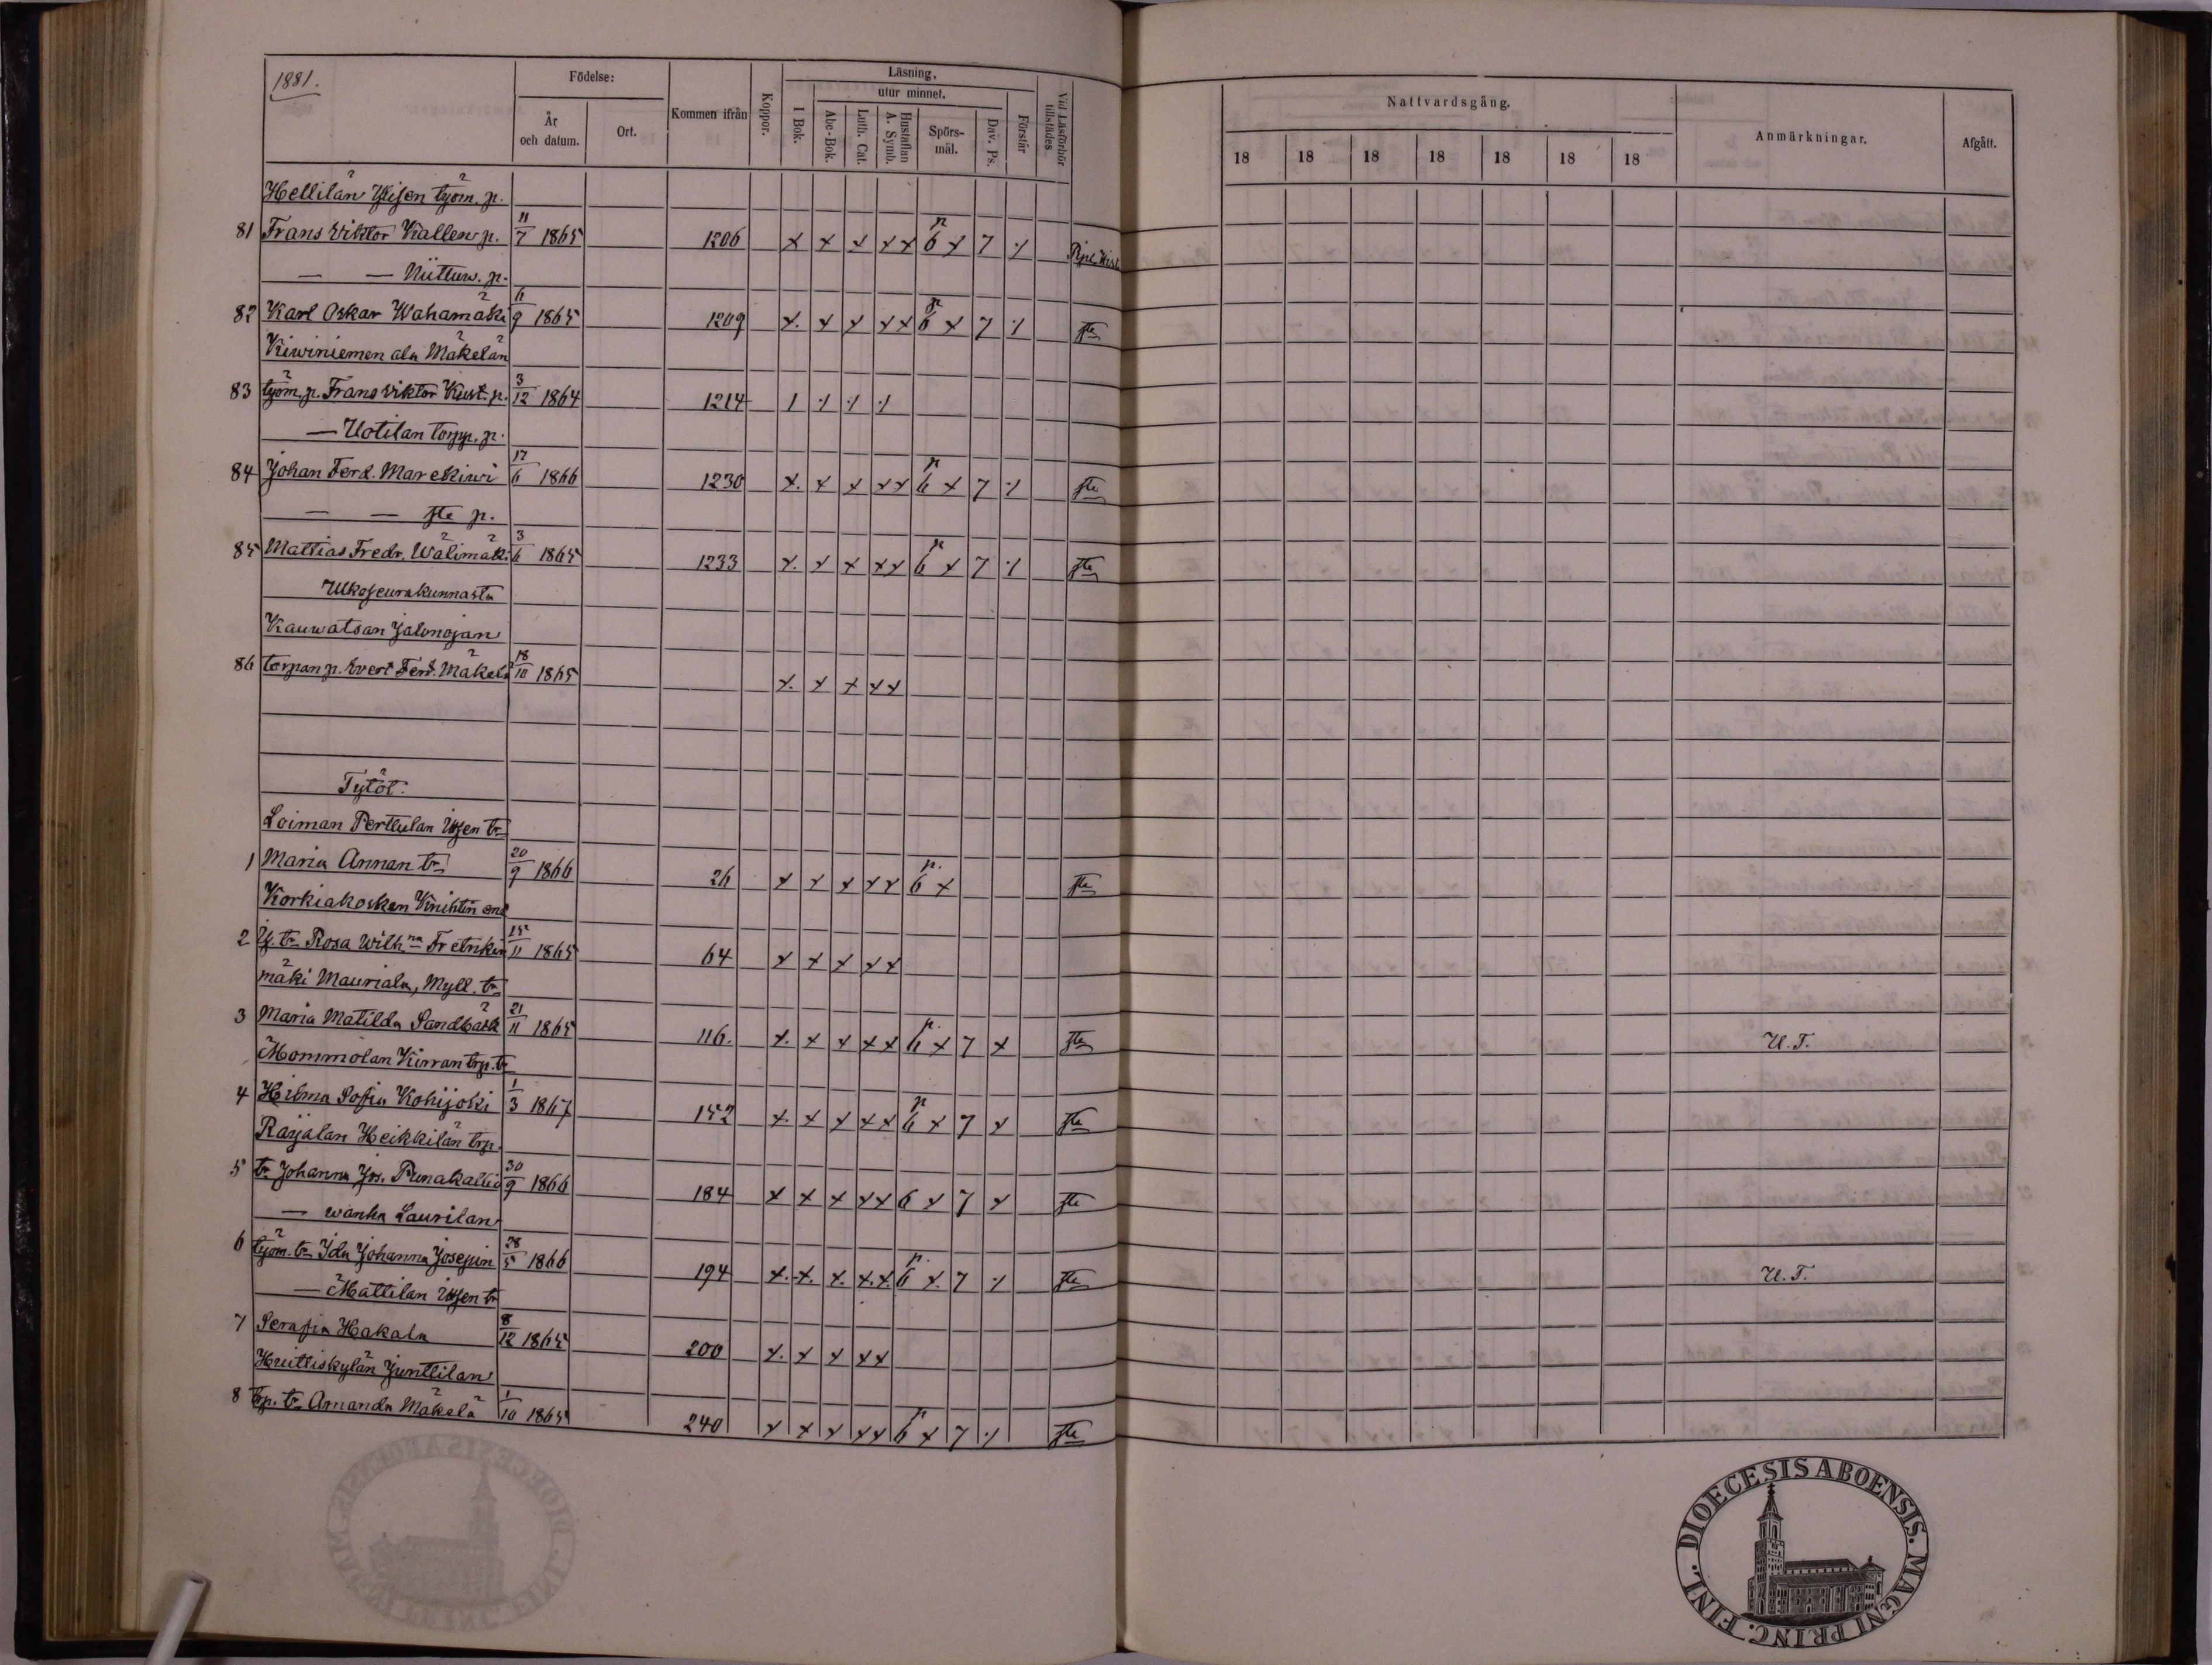 1881.
Födelse:
År och datum.
Ort.
Kommen ifrån
Koppor.
Läsning,
I Bok.
utur minnet.
Abc-Bok.
Luth. Cat.
Hustaflan A. Symb.
Spörs-mål.
Dav. Ps.
Förstår
Vid Läsförhör tillstädes
Nattvardsgång.
18 18 18 18 18 18 18
Anmärkningar.
Afgått.
Hellilän työm. p.
81 Frans Viktor Kallen p. 11/7 1865 1206 x x x x x p 6 x 7 ⁒
— — Niittuw. p.
82 Karl Oskar Wahamäki 6/9 1865 1209 x. x x x x p 6 x 7 ⁒ fte
Kiwiniemen ala Mäkelän
83 työm. p. Frans Viktor Kust. p. 3/12 1864 1214 1 ⁒ ⁒ ⁒
— Uotilan torpp. p.
84 Johan Ferd. Marekiwi 17/6 1866 1230 x. x x x x p 6 x 7 ⁒ fte
— — fte p.
85 Mattias Fredr. Wälimäki 3/6 1865 1233 x. x x x x p 6 x 7 ⁒ fte
Ulkoseurakunnasta
Kauwatsan Jalonojan
86 torpan p. Evert Ferd. Mäkelä 18/10 1865 x. x x x x
Tytöt.
Loiman Perttulan Itsen tr
1 Maria Annan tr 20/9 1866 26 x x x x x p. 6 x fte
Korkiakosken Knihtin
2 tr Rosa Wilh:na 15/11 1865 64 x x x x x
mäki Mauriala, Myll. tr
3 Maria Matilda Sandbäck 21/11 1865 116. x. x x x x p. 6 x 7 x fte U. T.
Mommolan Kirran trp. tr
4 Hilma Sofia Kohijoki 1/3 1867 152 x. x x x x p 6 x 7 x fte
Räijälan Heikkilän trp.
5 tr Johanna Jos. Punakallio 30/9 1866 184 x x x x x 6 x 7 x fte
— wanha Laurilan
6 työm. tr Ida Johanna Josepin 28/5 1866 194 x. x. x. x. x. p. 6 x. 7 ⁒ fte U. T.
— Mattilan Itsen tr
7 Serafia Hakala 8/12 1865 200 x. x x x x
Huittiskylän Junttilan
8 trp. tr Amanda Mäkelä 1/10 1865 240 x x x x x p 6 x 7 ⁒ fte
DIOECESIS ABOENSIS. MAGNI PRINC. FINL.